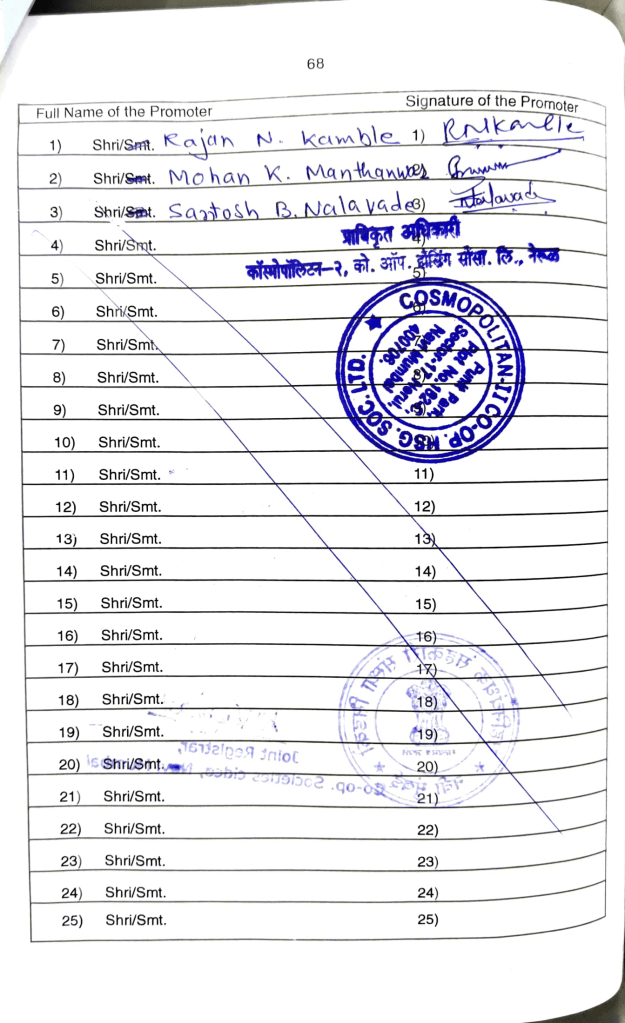 68
Full Name of the Promoter Signature of the Promoter
1) Shri/Smt. Rajan N. Kamble 1) RNKamble
2) Shri/Smt. Mohan K. 2)
3) Shri/Smt. Santosh B. Nalavade 3) Nalavade
प्राधिकृत अधिकारी
4) Shri/Smt. 4)
कॉस्मोपॉलिटन-२, को. ऑप. हौसिंग सोसा. लि., नेरूळ
5) Shri/Smt. 5)
6) Shri/Smt. 6)
COSMOPOLITAN-II CO-OP. HSG. SOC. LTD.
Punit Park,
Plot No.
Sector-17, Nerul,
Navi Mumbai
400706.
7) Shri/Smt. 7)
8) Shri/Smt. 8)
9) Shri/Smt. 9)
10) Shri/Smt. 10)
11) Shri/Smt. 11)
12) Shri/Smt. 12)
13) Shri/Smt. 13)
14) Shri/Smt. 14)
15) Shri/Smt. 15)
16) Shri/Smt. 16)
17) Shri/Smt. 17)
18) Shri/Smt. 18)
19) Shri/Smt. 19)
Joint Registrar,
20) Shri/Smt. 20)
Co-op. Societies cidco,
21) Shri/Smt. 21)
22) Shri/Smt. 22)
23) Shri/Smt. 23)
24) Shri/Smt. 24)
25) Shri/Smt. 25)